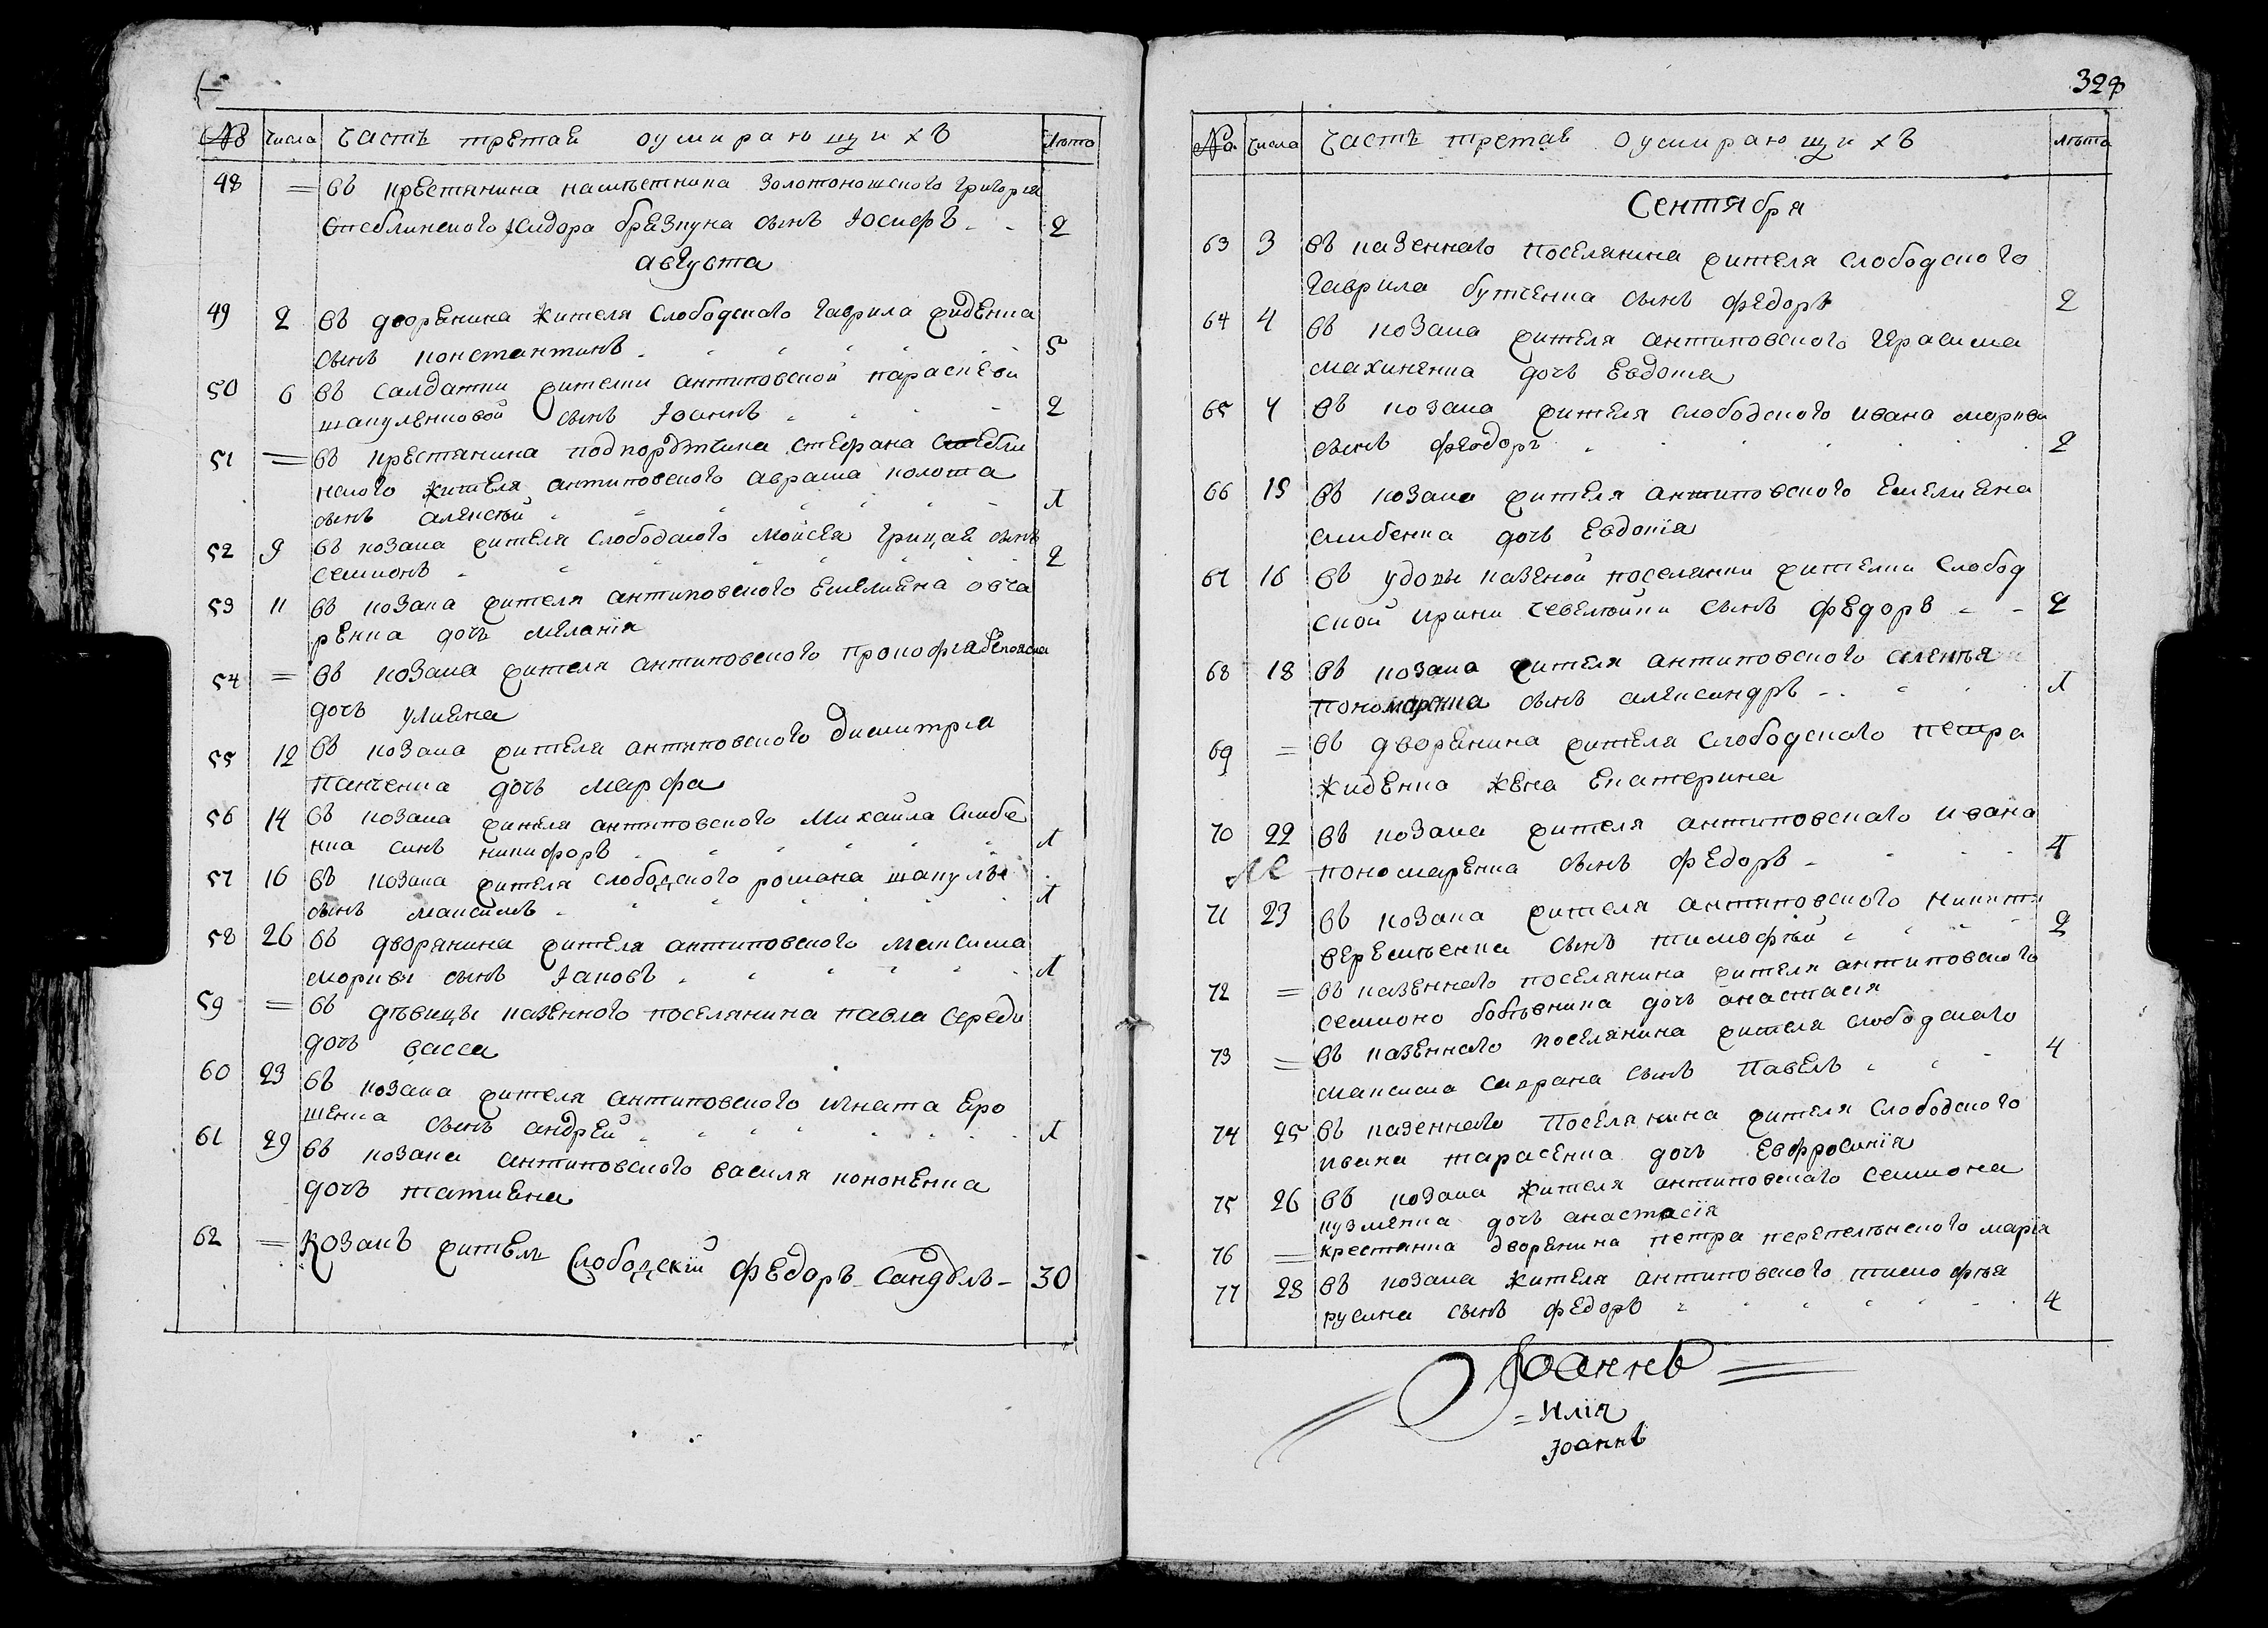 № Числа Часть третая о умирающихъ Лѣта
48 = въ крестянина намѣстника золотоношского григорія
Стеблинского Исидора брезкуна сынъ Іосифъ 2
августа
49 2 въ дворянина жителя Слободского гаврила жиденка
сынъ константинъ 5
50 6 въ салдатки жителки антиповской параскеви
шакуленковой сынъ Іоаннъ 2
51 = въ крестянина подпорутчика стефана Стебли
нского жителя антиповского аврама колота
сынъ алексѣй 1
52 9 въ козака жителя слободского Мойсея грицая сынъ
семионъ 2
53 11 въ козака жителя антиповского Емелияна овча
ренка дочь меланія
54 = въ козака жителя антиповского прокофія
дочь улияна
55 12 въ козака жителя антиповского димитрія
панченка дочь марфа
56 14 въ козака жителя антиповского Михаила Скибе
нка синъ никифоръ 1
57 16 въ козака жителя слободского романа шакулѣя
сынъ максимъ 1
58 26 въ дворянина жителя антиповского максима
моривя сынъ Іаковъ 1
59 = въ дѣвицы казенного поселянина павла середи
дочь васса
60 23 въ козака жителя антиповского игната Еро
шенка сынъ андрей 1
61 29 въ козака антиповского василя кононенка
дочь татияна
62 = Козакъ житель Слободскій федоръ Сандѣлъ 30
328
№ Числа Часть третая о умирающихъ лѣта
Сентября
63 3 въ казенного поселянина жителя слободского
гаврила бутченка сынъ федоръ 2
64 4 въ козака жителя антиповского герасима
махиненка дочь Евдокия
65 4 въ козака жителя слободского ивана моривя
сынъ феодоръ 2
66 15 въ козака жителя антиповского Емелияна
скибенка дочь Евдокія
67 16 въ удовы казеной поселянки жителки слобод
ской ирини чевелюйки сынъ федоръ 2
68 18 въ козака жителя антиповского алексѣя
пономаренка сынъ александръ 1
69 = въ дворянина жителя слободского петра
жиденка жена Екатерина
70 22 въ козака жителя антиповского ивана
пономаренка сынъ федоръ 4
71 23 въ козака жителя антиповского никити
веремѣенка сынъ тимофѣй 2
72 = въ казенного поселянина жителя антиповского
семиона бобровника дочь анастасія
73 = въ казенного поселянина жителя слободского
максима саврана сынъ Павелъ 4
74 25 въ казенного поселянина жителя Слободского
ивана тарасенка дочь Евфросинія
75 26 въ козака жителя антиповского семиона
кузменка дочь анастасія
76 = крестянка дворянина петра перепелѣнского марія
77 28 въ козака жителя антиповского тимофѣя
русина сынъ федоръ 4
Іоаннъ
= Илія
Іоаннъ